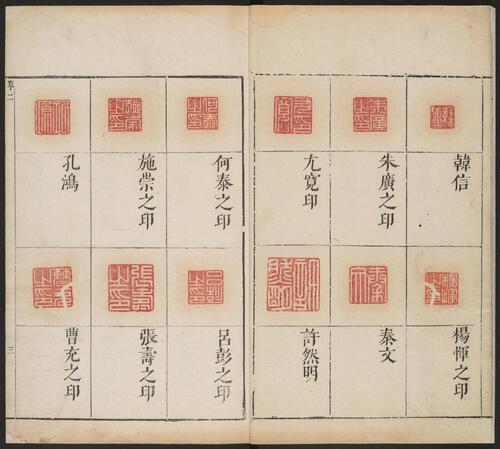 韓信
朱廣之印
尢寬印
楊惲之印
秦文
許然明
何泰之印
施崇之印
孔鴻
呂彭之印
張壽之印
曹充之印
卷二
三